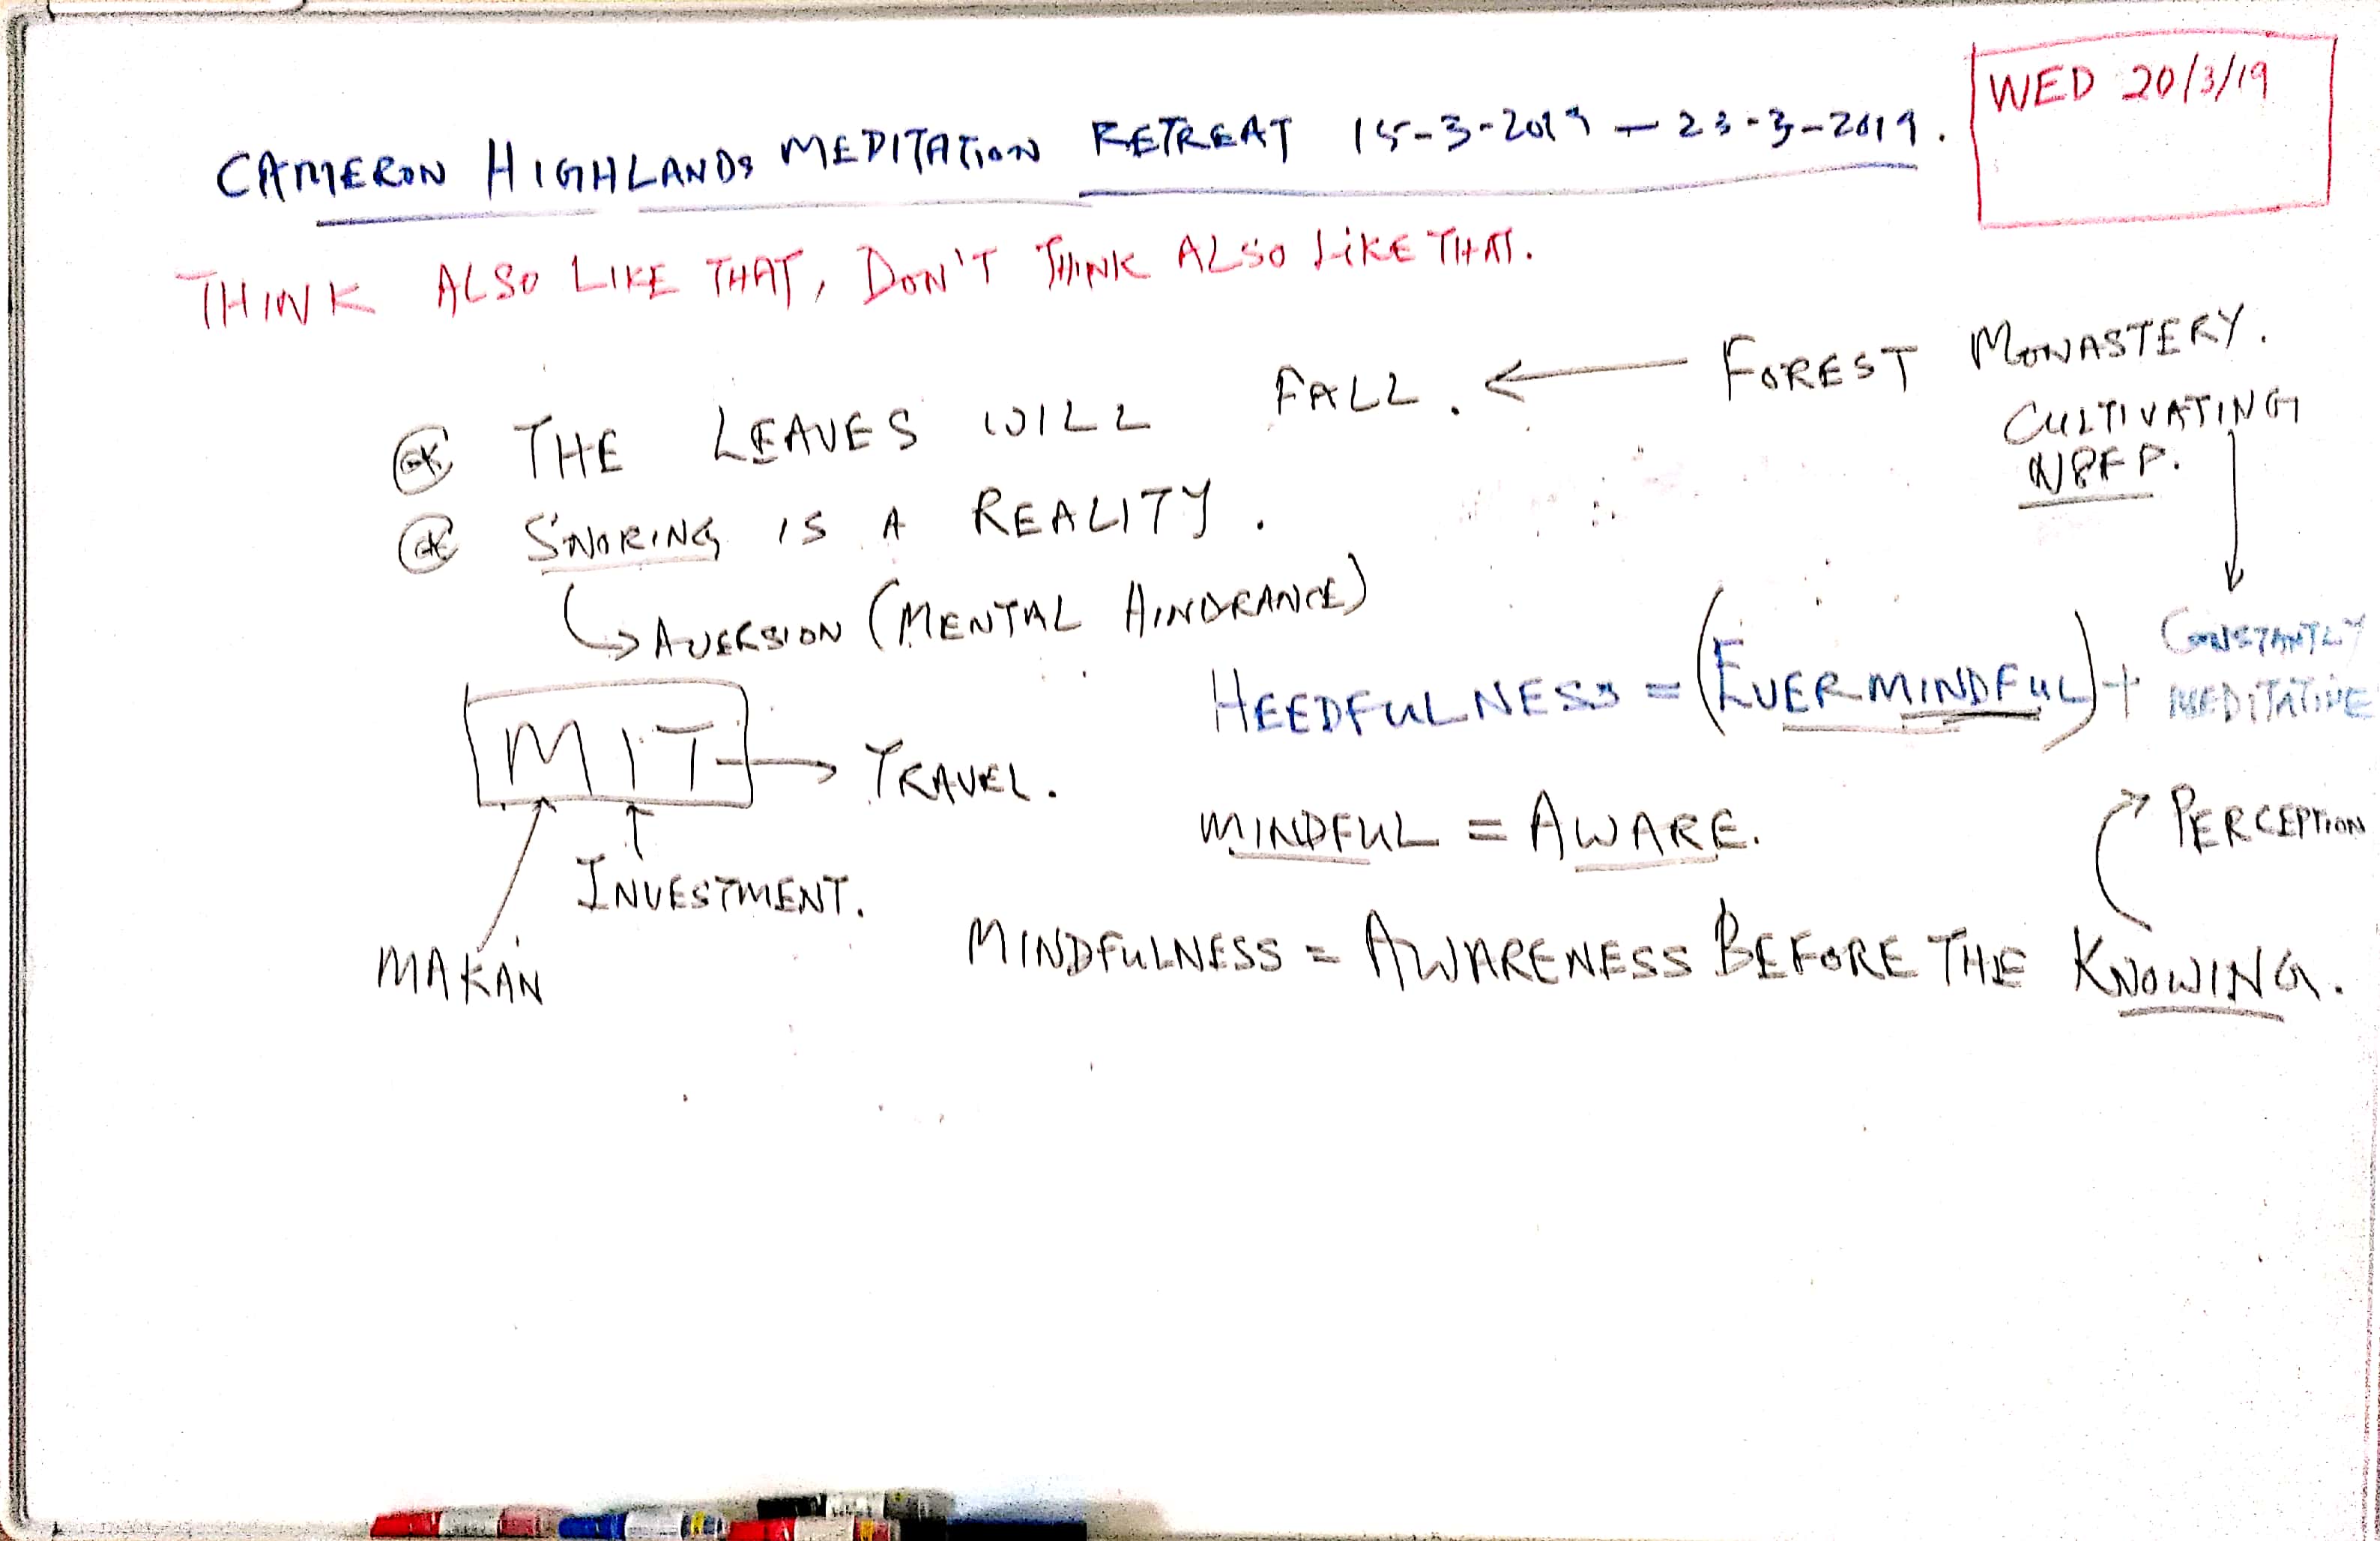 WED 20/3/19
CAMERON HIGHLANDS MEDITATION RETREAT 15-3-2019 — 23-3-2019.
THINK ALSO LIKE THAT, DON'T THINK ALSO LIKE THAT.
THE LEAVES WILL FALL. ← FOREST MONASTERY.
CULTIVATING
N8FP.
SNORING IS A REALITY.
AVERSION (MENTAL HINDRANCE)
HEEDFULNESS = (EVER MINDFUL) + CONSTANTLY MEDITATIVE
MIT → TRAVEL.
INVESTMENT.
MAKAN
MINDFUL = AWARE.
PERCEPTION
MINDFULNESS = AWARENESS BEFORE THE KNOWING.